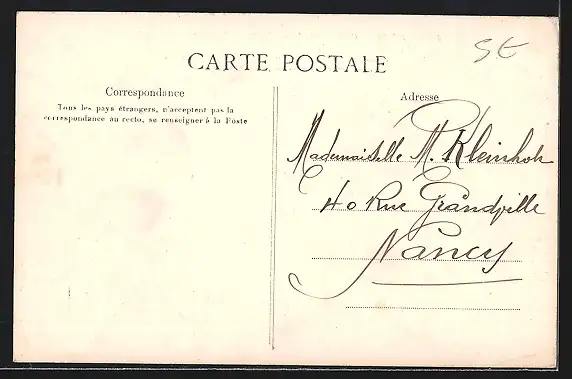 CARTE POSTALE
Correspondance
Tous les pays étrangers, n'acceptent pas la
correspondance au recto, se renseigner à la Poste
Adresse
Mademoiselle M. Kleinholz
40 Rue Grandville
Nancy